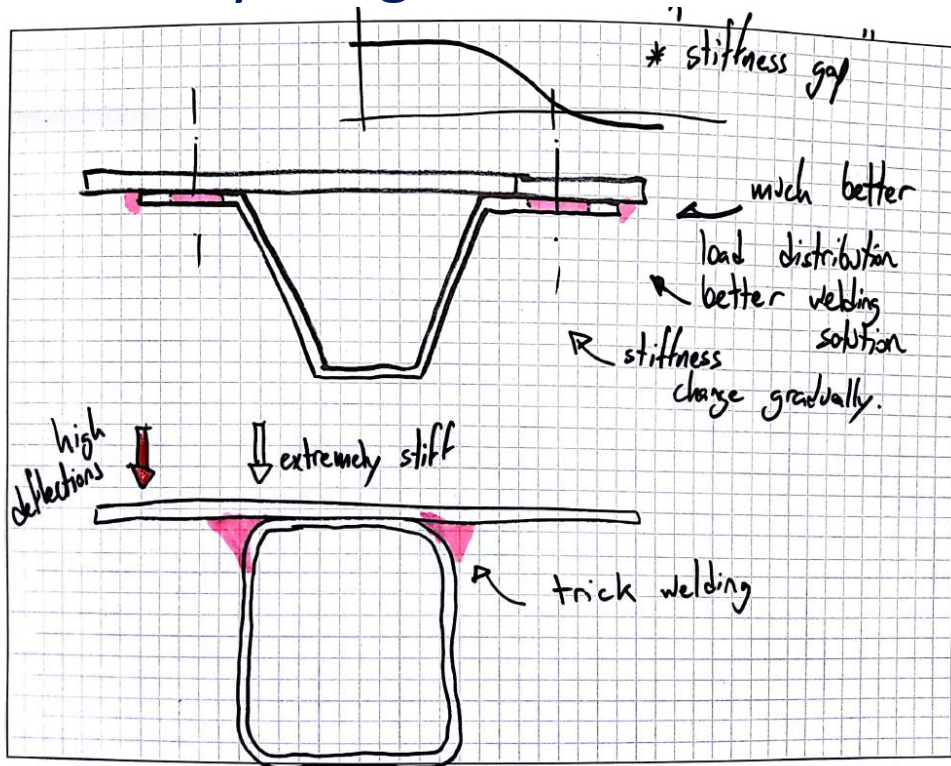 * stiffness gap
much better
load distribution
better welding
solution
stiffness
change gradually.
high
deflections
extremely stiff
trick welding